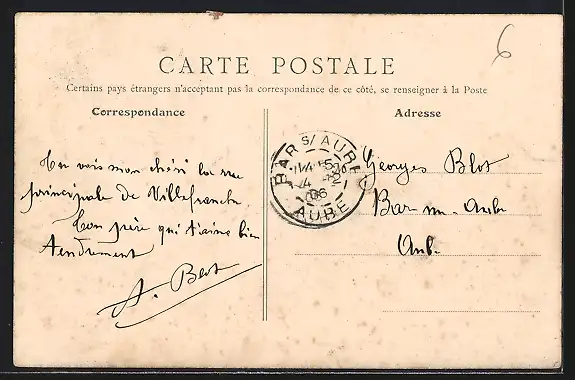 6
CARTE POSTALE
Certains pays étrangers n'acceptant pas la correspondance de ce côté, se renseigner à la Poste
Correspondance
Tu vois mon chéri la rue
principale de Villefranche
Ton père qui t'aime bien
tendrement
A. Blot
Adresse
Georges Blot
Bar sur Aube
Aube
BAR S/ AUBE
AUBE